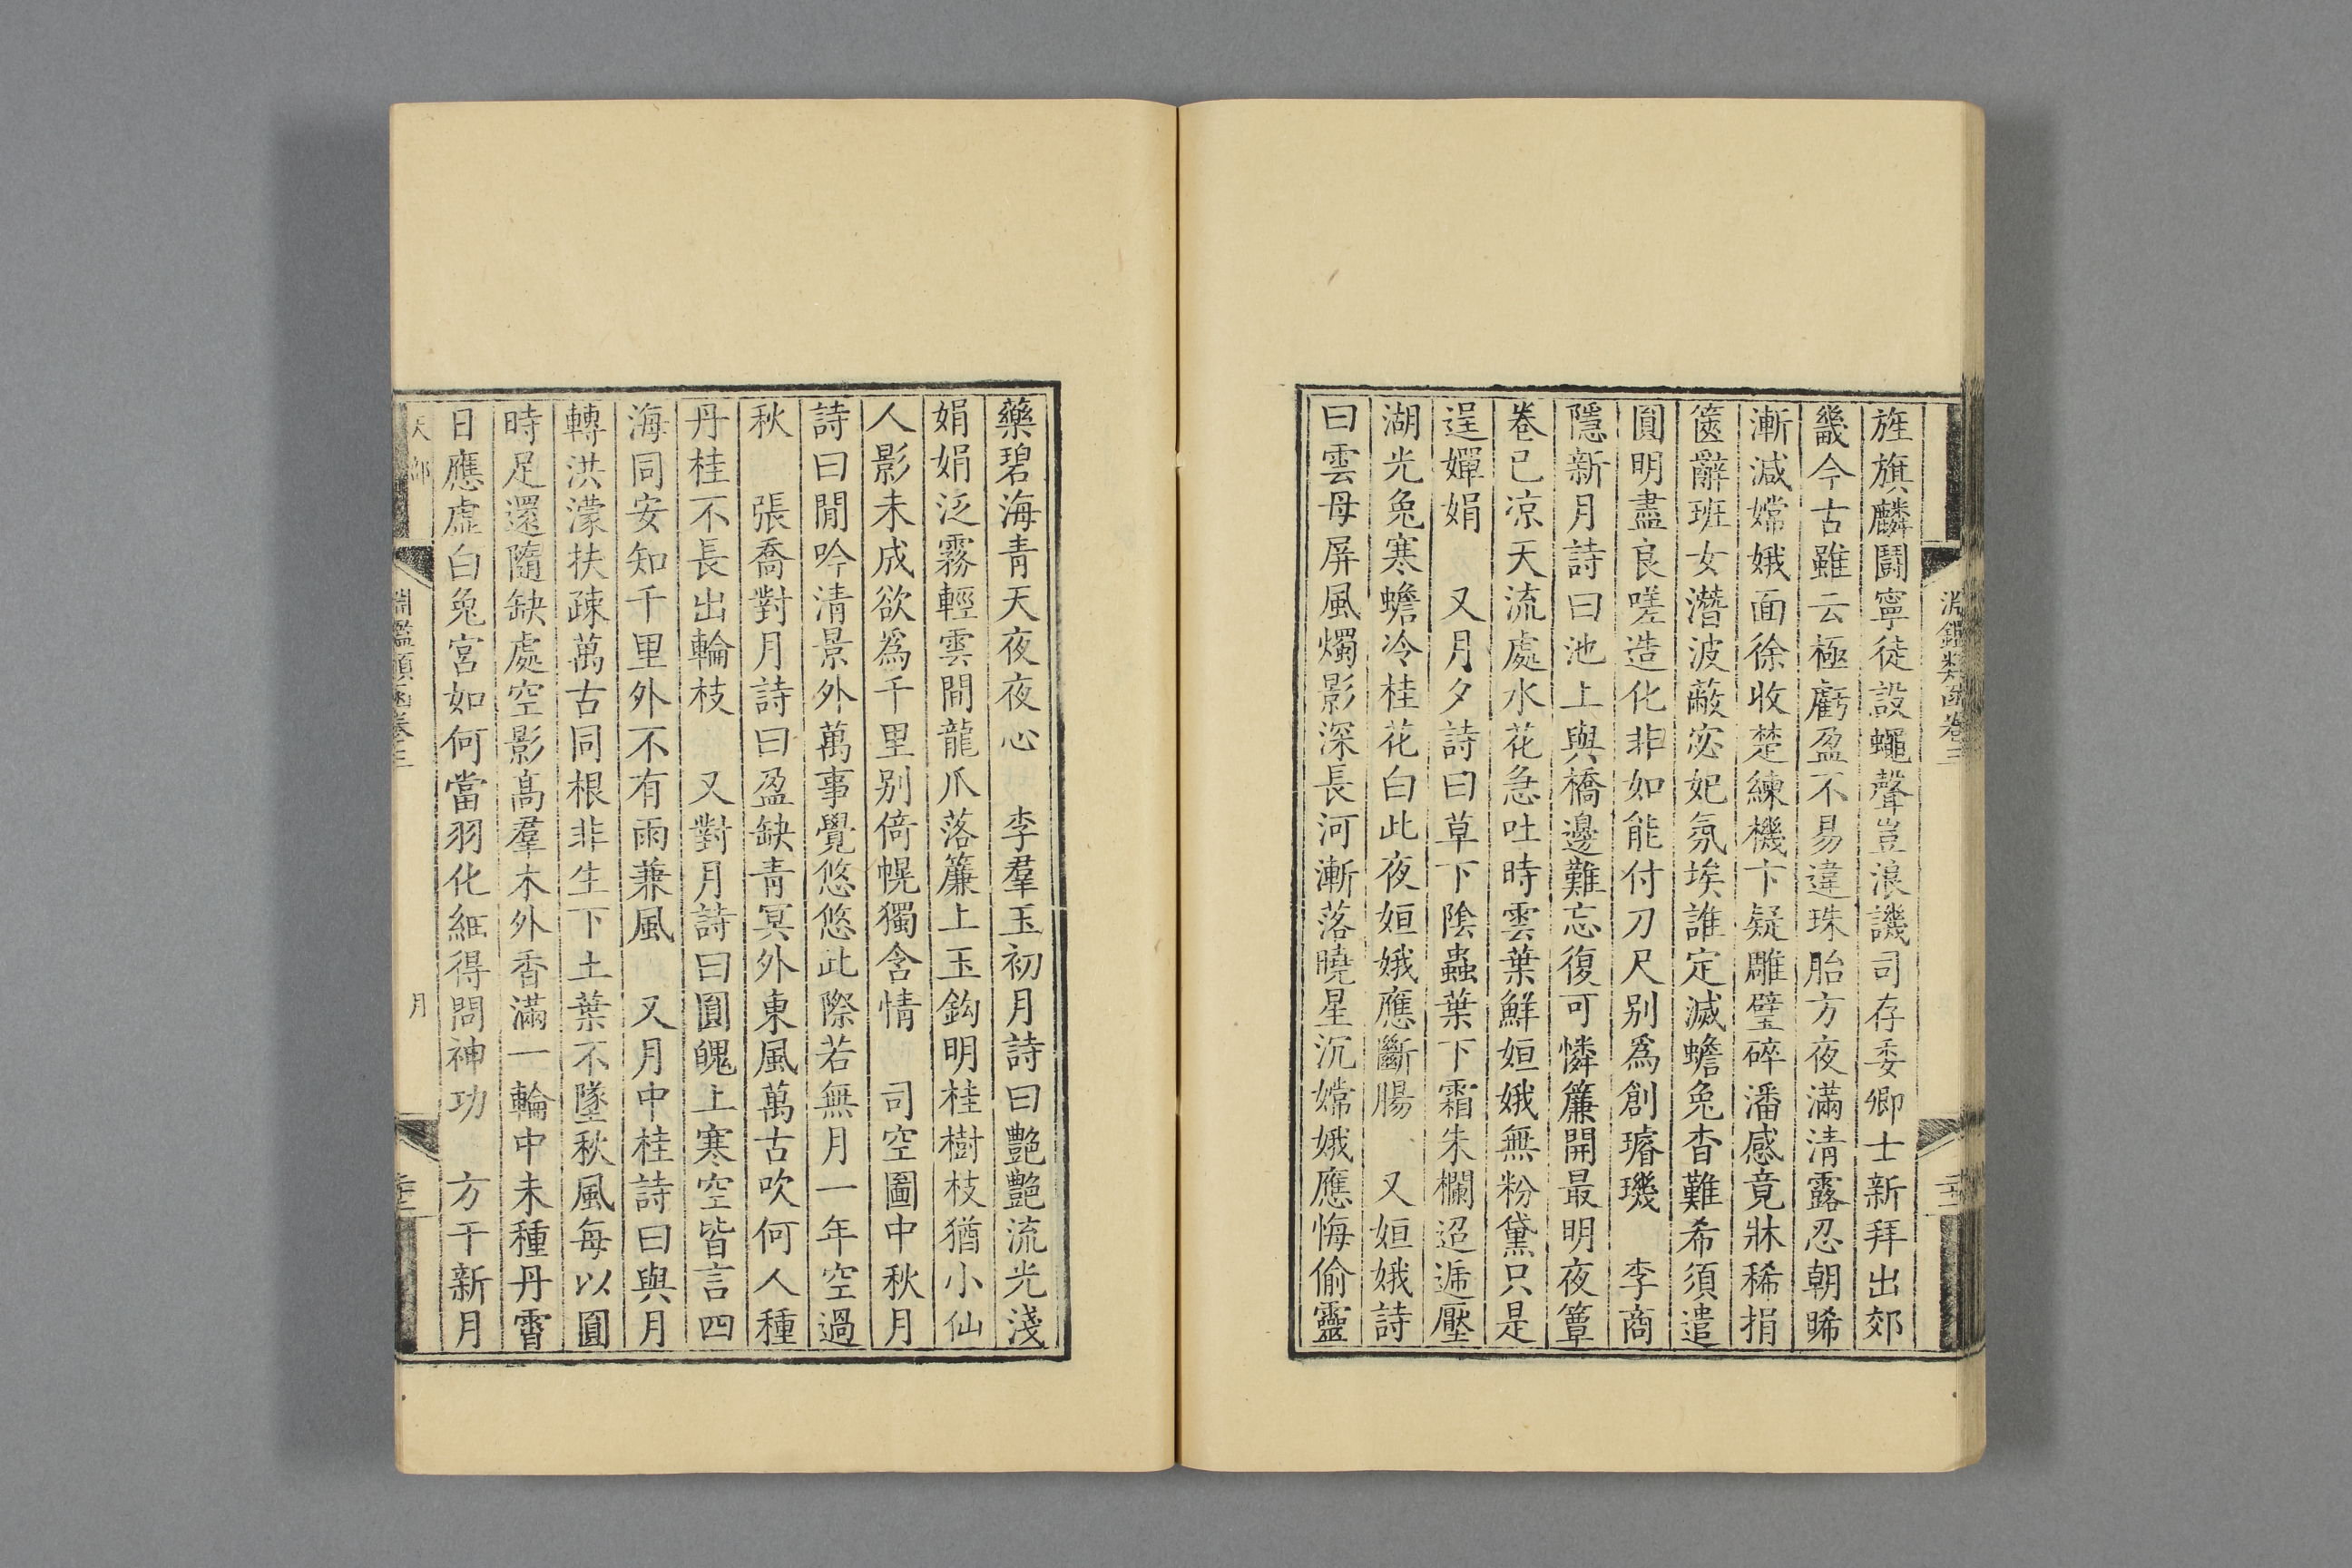 旌旗麟鬬寧徒設蠅聲豈浪譏司存委卿士新拜出郊
畿今古雖云極虧盈不易違珠胎方夜滿清露忍朝晞
漸減嫦娥面徐收楚練機卞疑雕璧碎潘感竟牀稀捐
篋辭班女潛波蔽宓妃氛埃誰定滅蟾兔杳難希須遣
圓明盡良嗟造化非如能付刀尺别爲創璿璣　李商
隱新月詩曰池上與橋邊難忘復可憐簾開最明夜簟
卷已凉天流處水花急吐時雲葉鮮姮娥無粉黛只是
逞嬋娟　又月夕詩曰草下陰蟲葉下霜朱欄迢遞壓
湖光兔寒蟾冷桂花白此夜姮娥應斷腸　又姮娥詩
曰雲母屏風燭影深長河漸落曉星沉嫦娥應悔偷靈
淵鑑類函卷三
藥碧海青天夜夜心　李羣玉初月詩曰艶艶流光淺
娟娟泛霧輕雲間龍爪落簾上玉鈎明桂樹枝猶小仙
人影未成欲爲千里别倚幌獨含情　司空圖中秋月
詩曰閒吟清景外萬事覺悠悠此際若無月一年空過
秋　張喬對月詩曰盈缺青冥外東風萬古吹何人種
丹桂不長出輪枝　又對月詩曰圓魄上寒空皆言四
海同安知千里外不有雨兼風　又月中桂詩曰與月
轉洪濛扶疎萬古同根非生下土葉不墜秋風每以圓
時足還隨缺處空影髙羣木外香滿一輪中未種丹霄
日應虛白兔宮如何當羽化細得問神功　方干新月
天部
淵鑑類函卷三
月